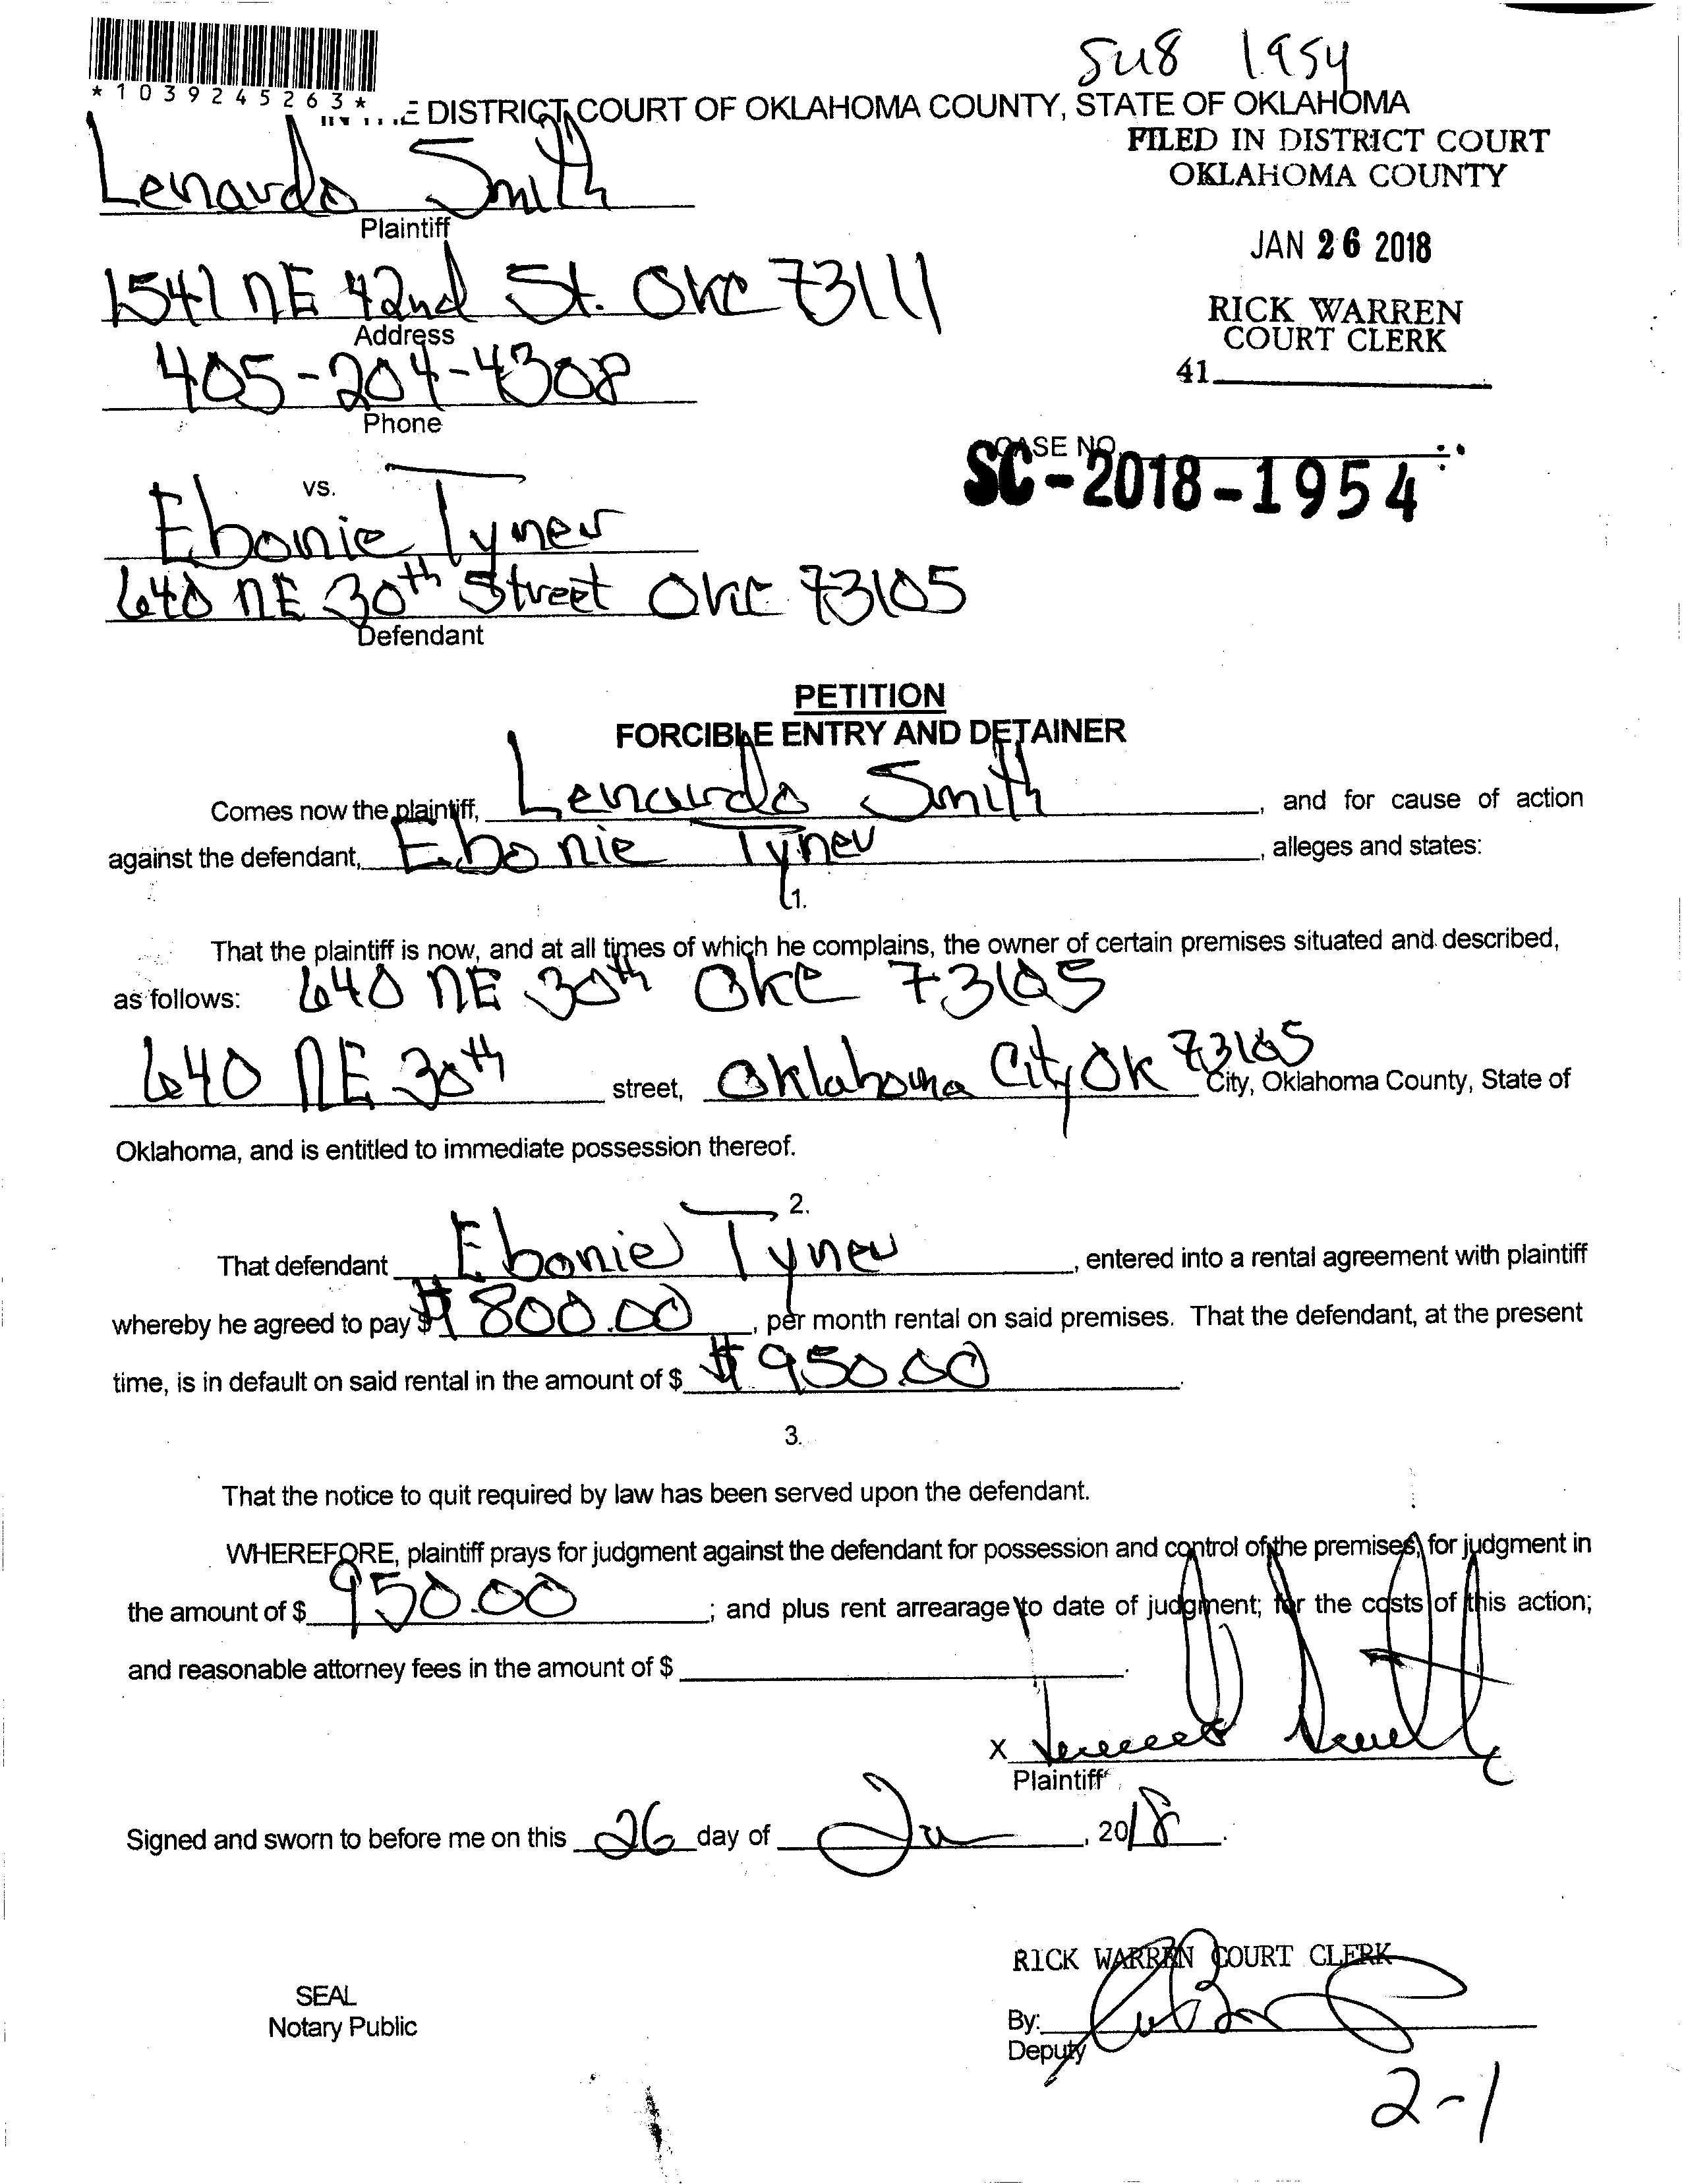 SU8 1954
*1039245263*
DISTRICT COURT OF OKLAHOMA COUNTY, STATE OF OKLAHOMA
FILED IN DISTRICT COURT
OKLAHOMA COUNTY
Lenardo Smith
Plaintiff
JAN 26 2018
1541 NE 42nd St. OKC 73111
Address
RICK WARREN
COURT CLERK
405-204-4308
Phone
41
CASE NO.
SC-2018-1954
vs.
Ebonie Tyner
640 NE 30th Street OKC 73105
Defendant
PETITION
FORCIBLE ENTRY AND DETAINER
Comes now the plaintiff, Lenardo Smith, and for cause of action
against the defendant, Ebonie Tyner, alleges and states:
1.
That the plaintiff is now, and at all times of which he complains, the owner of certain premises situated and described,
as follows: 640 NE 30th OKC 73105
640 NE 30th street, Oklahoma City, OK 73105 City, Oklahoma County, State of
Oklahoma, and is entitled to immediate possession thereof.
2.
That defendant Ebonie Tyner, entered into a rental agreement with plaintiff
whereby he agreed to pay $ $800.00, per month rental on said premises. That the defendant, at the present
time, is in default on said rental in the amount of $ $950.00.
3.
That the notice to quit required by law has been served upon the defendant.
WHEREFORE, plaintiff prays for judgment against the defendant for possession and control of the premises, for judgment in
the amount of $ 950.00; and plus rent arrearage to date of judgment; for the costs of this action;
and reasonable attorney fees in the amount of $
X
Plaintiff
Signed and sworn to before me on this 26 day of Jan, 2018.
RICK WARREN COURT CLERK
SEAL
Notary Public
By:
Deputy
2-1